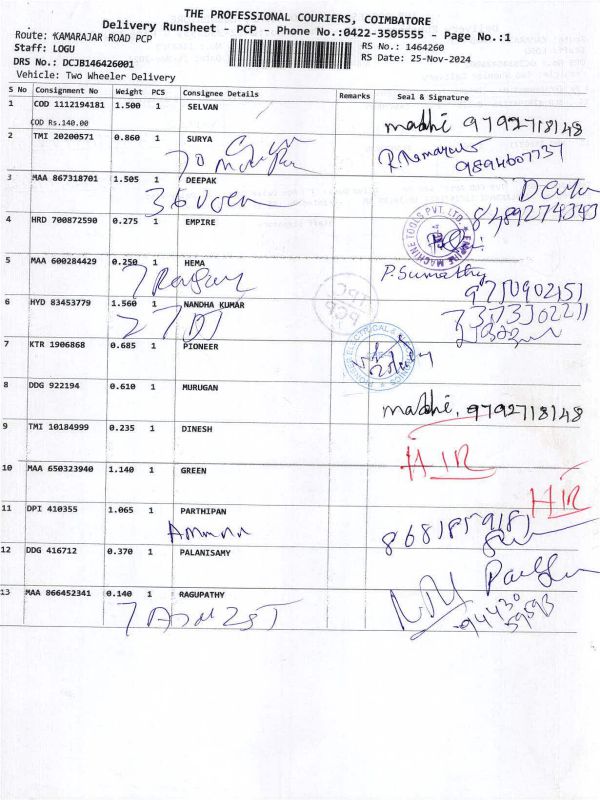 THE PROFESSIONAL COURIERS, COIMBATORE
Delivery Runsheet - PCP - Phone No.:0422-3505555 - Page No.:1
Route: KAMARAJAR ROAD PCP
RS No.: 1464260
Staff: LOGU
RS Date: 25-Nov-2024
DRS No.: DCJB146426001
Vehicle: Two Wheeler Delivery
S No Consignment No Weight PCS Consignee Details Remarks Seal & Signature
1 COD 1112194181 1.500 1 SELVAN
COD Rs.140.00
madhi 9792718148
2 TMI 20200571 0.860 1 SURYA
70
9894607737
3 MAA 867318701 1.505 1 DEEPAK
36
8489274343
4 HRD 700872590 0.275 1 EMPIRE
EMPIRE MACHINE TOOLS PVT. LTD.
5 MAA 600284429 0.250 1 HEMA
7
P. Sumathy
9750902151
6 HYD 83453779 1.560 1 NANDHA KUMAR
27
PCP
7373302271
7 KTR 1906868 0.685 1 PIONEER
PIONEER ELECTRICAL &
8 DDG 922194 0.610 1 MURUGAN
madhi, 9792718148
9 TMI 10184999 0.235 1 DINESH
HIR
10 MAA 650323940 1.140 1 GREEN
HIR
11 DPI 410355 1.065 1 PARTHIPAN
8681859181
12 DDG 416712 0.370 1 PALANISAMY
13 MAA 866452341 0.140 1 RAGUPATHY
94430
59593